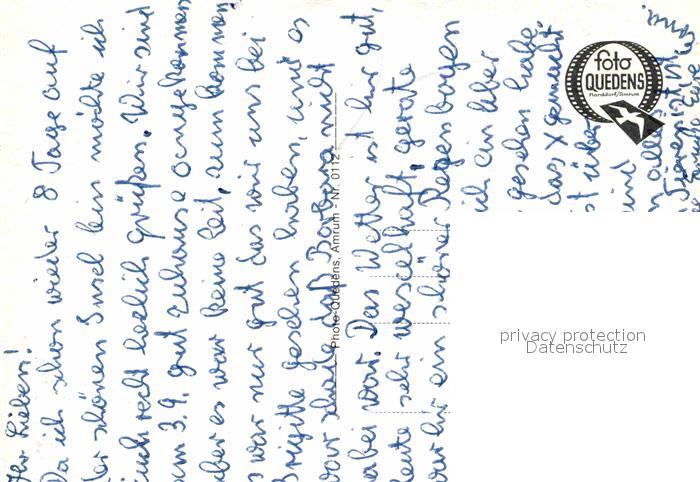 Ihr Lieben!
Da ich schon wieder 8 Tage auf
der schönen Insel bin möchte ich
Euch recht herzlich grüßen. Wir sind
am 3.9. gut zuhause angekommen
aber es war keine Zeit, zum kommen.
s war nur gut das wir uns bei
Brigitte gesehen haben, und es
war schade daß Barbara nicht
dabei war. Das Wetter ist hir gut,
heute sehr weselhaft, gerate
war hir ein schöner Regenbogen
ich ein über
gesehen habe.
das X gemacht
st über
und
Photo-Quedens, Amrum - Nr. 0112
foto
QUEDENS
Norddorf/Amrum
privacy protection
Datenschutz